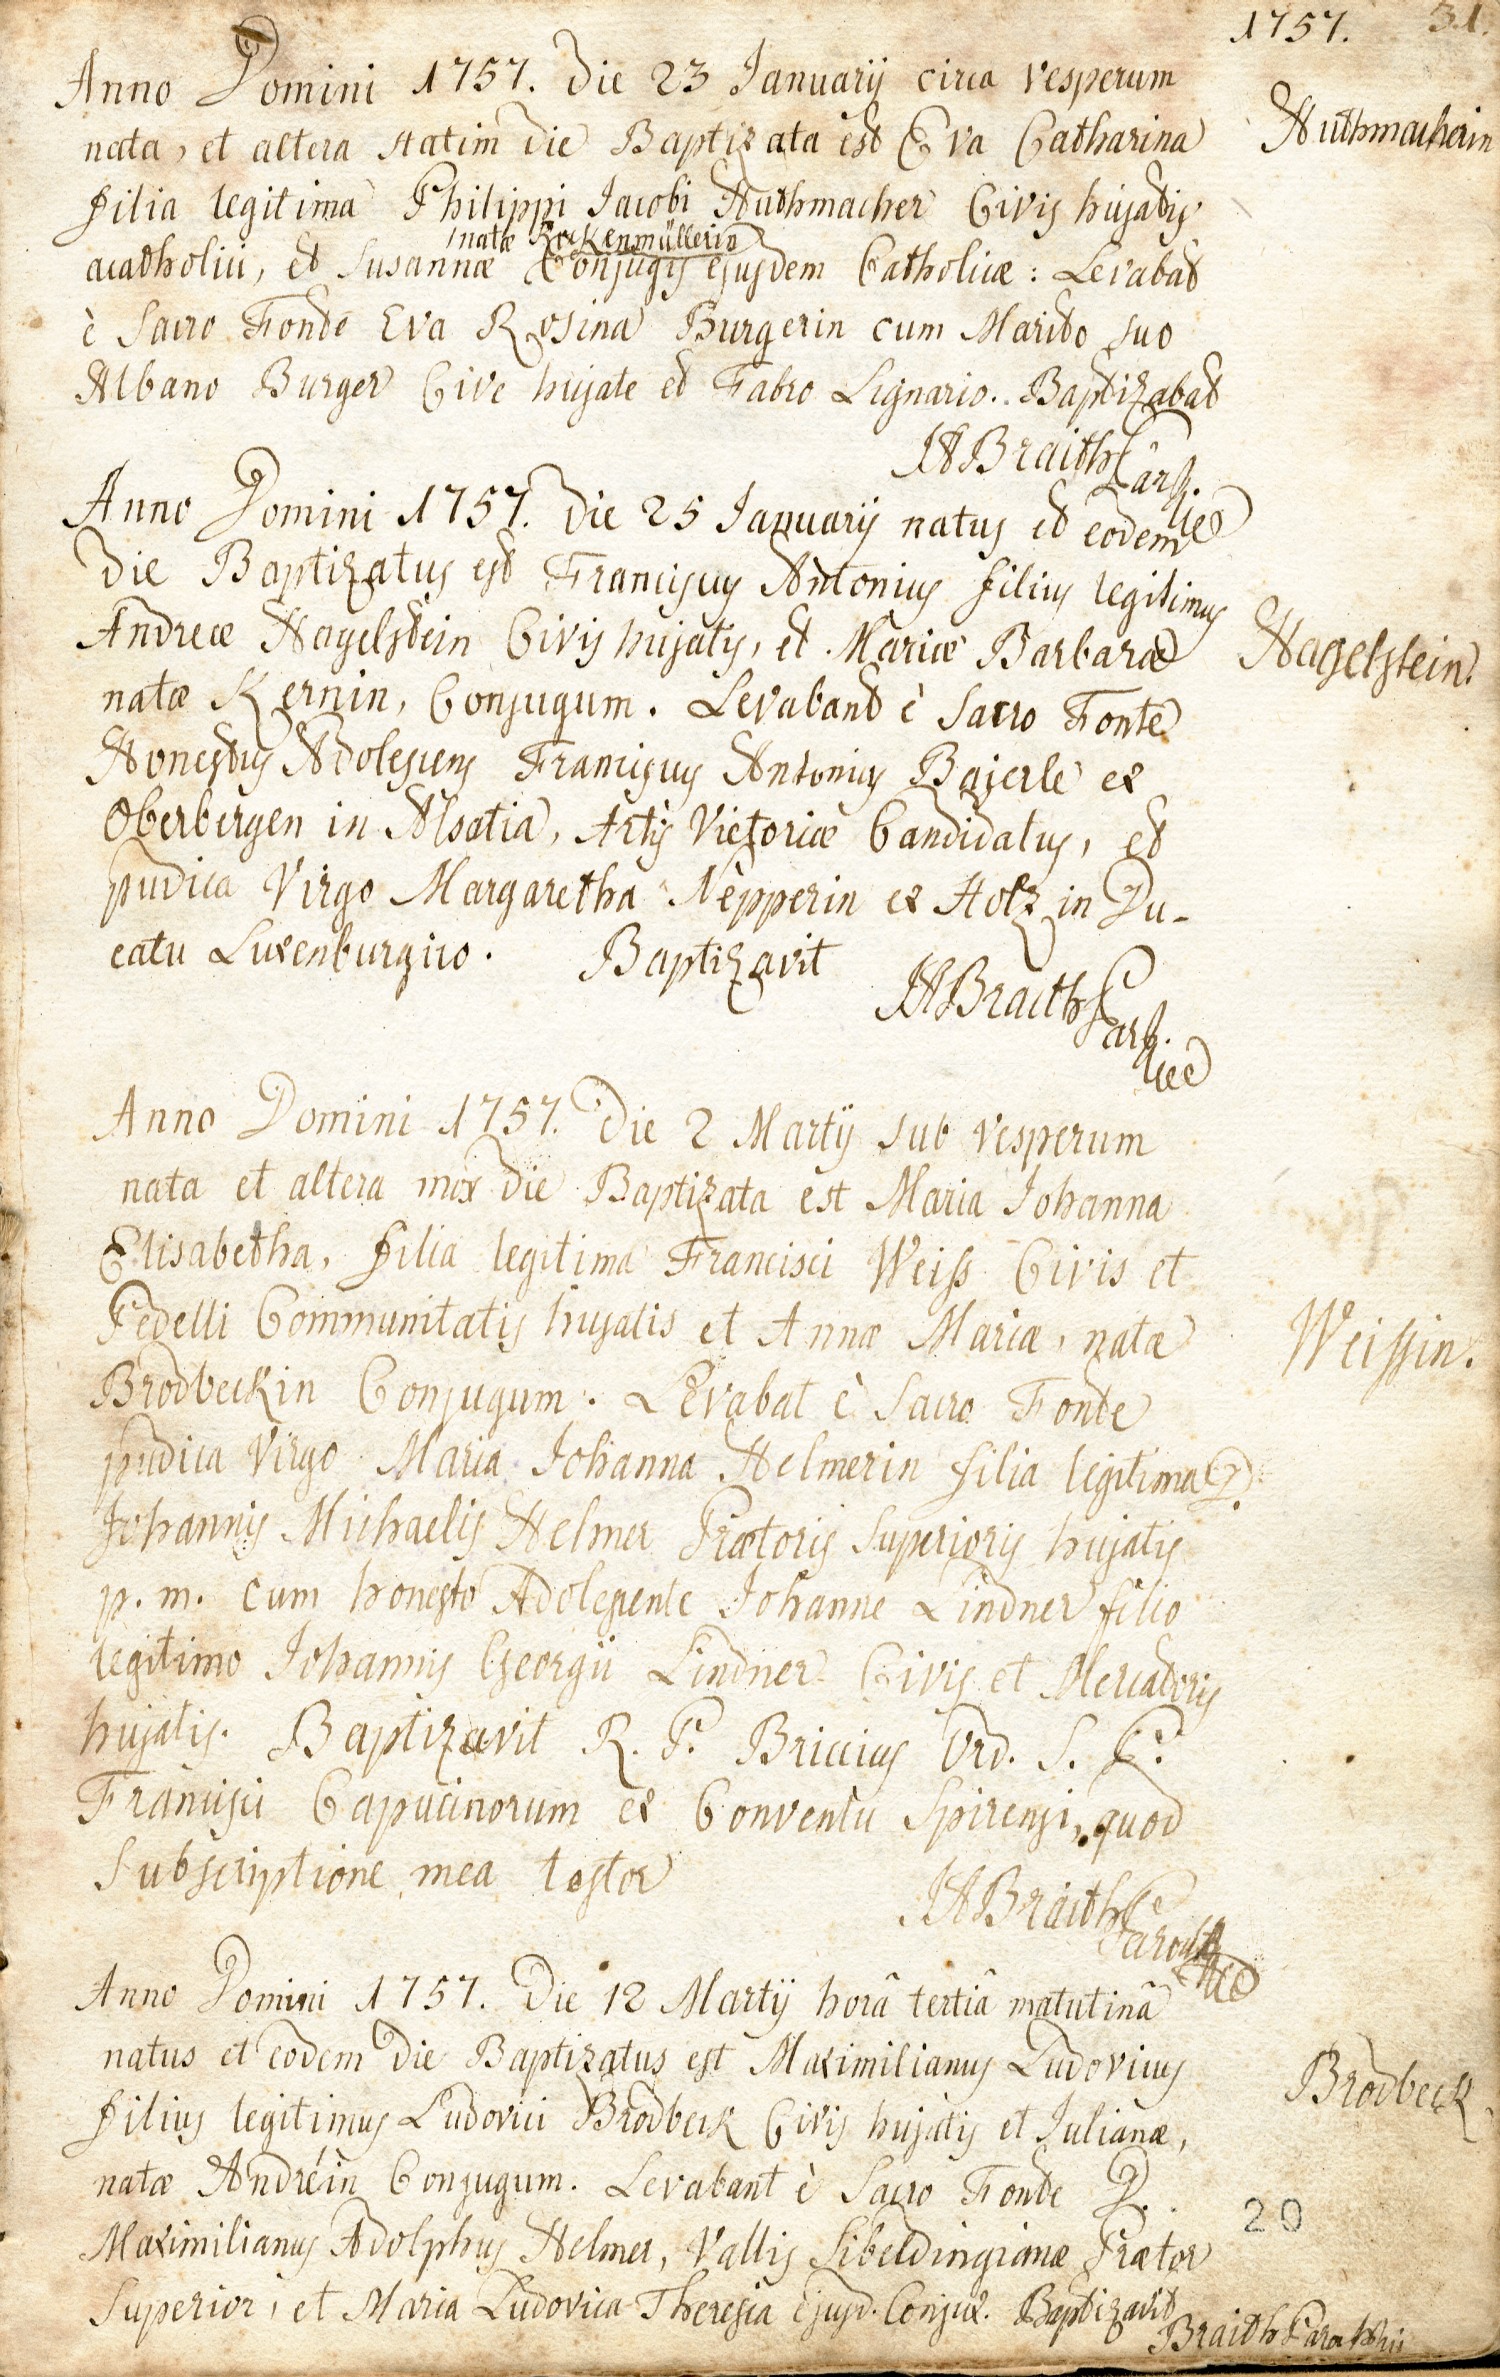 1757. 31.
Anno Domini 1757. die 23 Januarij circa vesperum
nata, et altera statim die Baptizata est Eva Catharina
Huthmacherin
filia legitima Philippi Jacobi Huthmacher Civis hujatis
natæ Rockenmüllerin
acatholici, et Susannæ Conjugis ejusdem Catholicæ: Levabat
è Sacro Fonte Eva Rosina Burgerin cum Marito suo
Albano Burger Cive hujate et Fabro Lignario. Baptizabat
JHBraith
Anno Domini 1757. die 25 Januarij natus et eodem
die Baptizatus est Franciscus Antonius filius legitimus
Andreæ Nagelstein Civis hujatis, et Mariæ Barbaræ
Nagelstein.
natæ Kernin, Conjugum. Levabant è Sacro Fonte
Honestus Adolescens Franciscus Antonius Bajerle ex
Oberbergen in Alsatia, Artis Vietoriæ Candidatus, et
pudica Virgo Margaretha Nepperin ex Holz in Du-
catu Luxenburgico. Baptizavit
JHBraith
Anno Domini 1757. Die 2 Martij sub vesperum
nata et altera mox die Baptizata est Maria Johanna
Elisabetha, filia legitima Francisci Weiss Civis et
Pedelli Communitatis hujatis et Annæ Mariæ, natæ
Weissin.
Brodbeckin Conjugum. Levabat è Sacro Fonte
pudica Virgo Maria Johanna Helmerin filia legitima D.
Johannis Michaelis Helmer Prætoris Superioris hujatis
p. m. cum honesto Adolescente Johanne Lindner filio
legitimo Johannis Georgii Lindner Civis et Mercatoris
hujatis. Baptizavit R. P. Briccius Ord. S. P.
Francisci Capucinorum ex Conventu Spirensi, quod
Subscriptione mea testor
JHBraith
Anno Domini 1757. Die 12 Martij horâ tertiâ matutinâ
natus et eodem die Baptizatus est Maximilianus Ludovicus
Brodbeck
filius legitimus Ludovici Brodbeck Civis hujatis et Julianæ,
natæ Andréin Conjugum. Levabant è Sacro Fonte D.
20
Maximilianus Adolphus Helmer, Vallis Sibeldingianæ Prætor
Superior, et Maria Ludovica Theresia ejusd. Conjux. Baptizavit
Braith